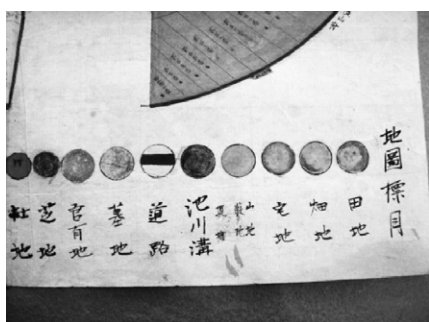 地圖標目
田地
畑地
宅地
山地
池川溝
道路
墓地
官有地
芝地
社地